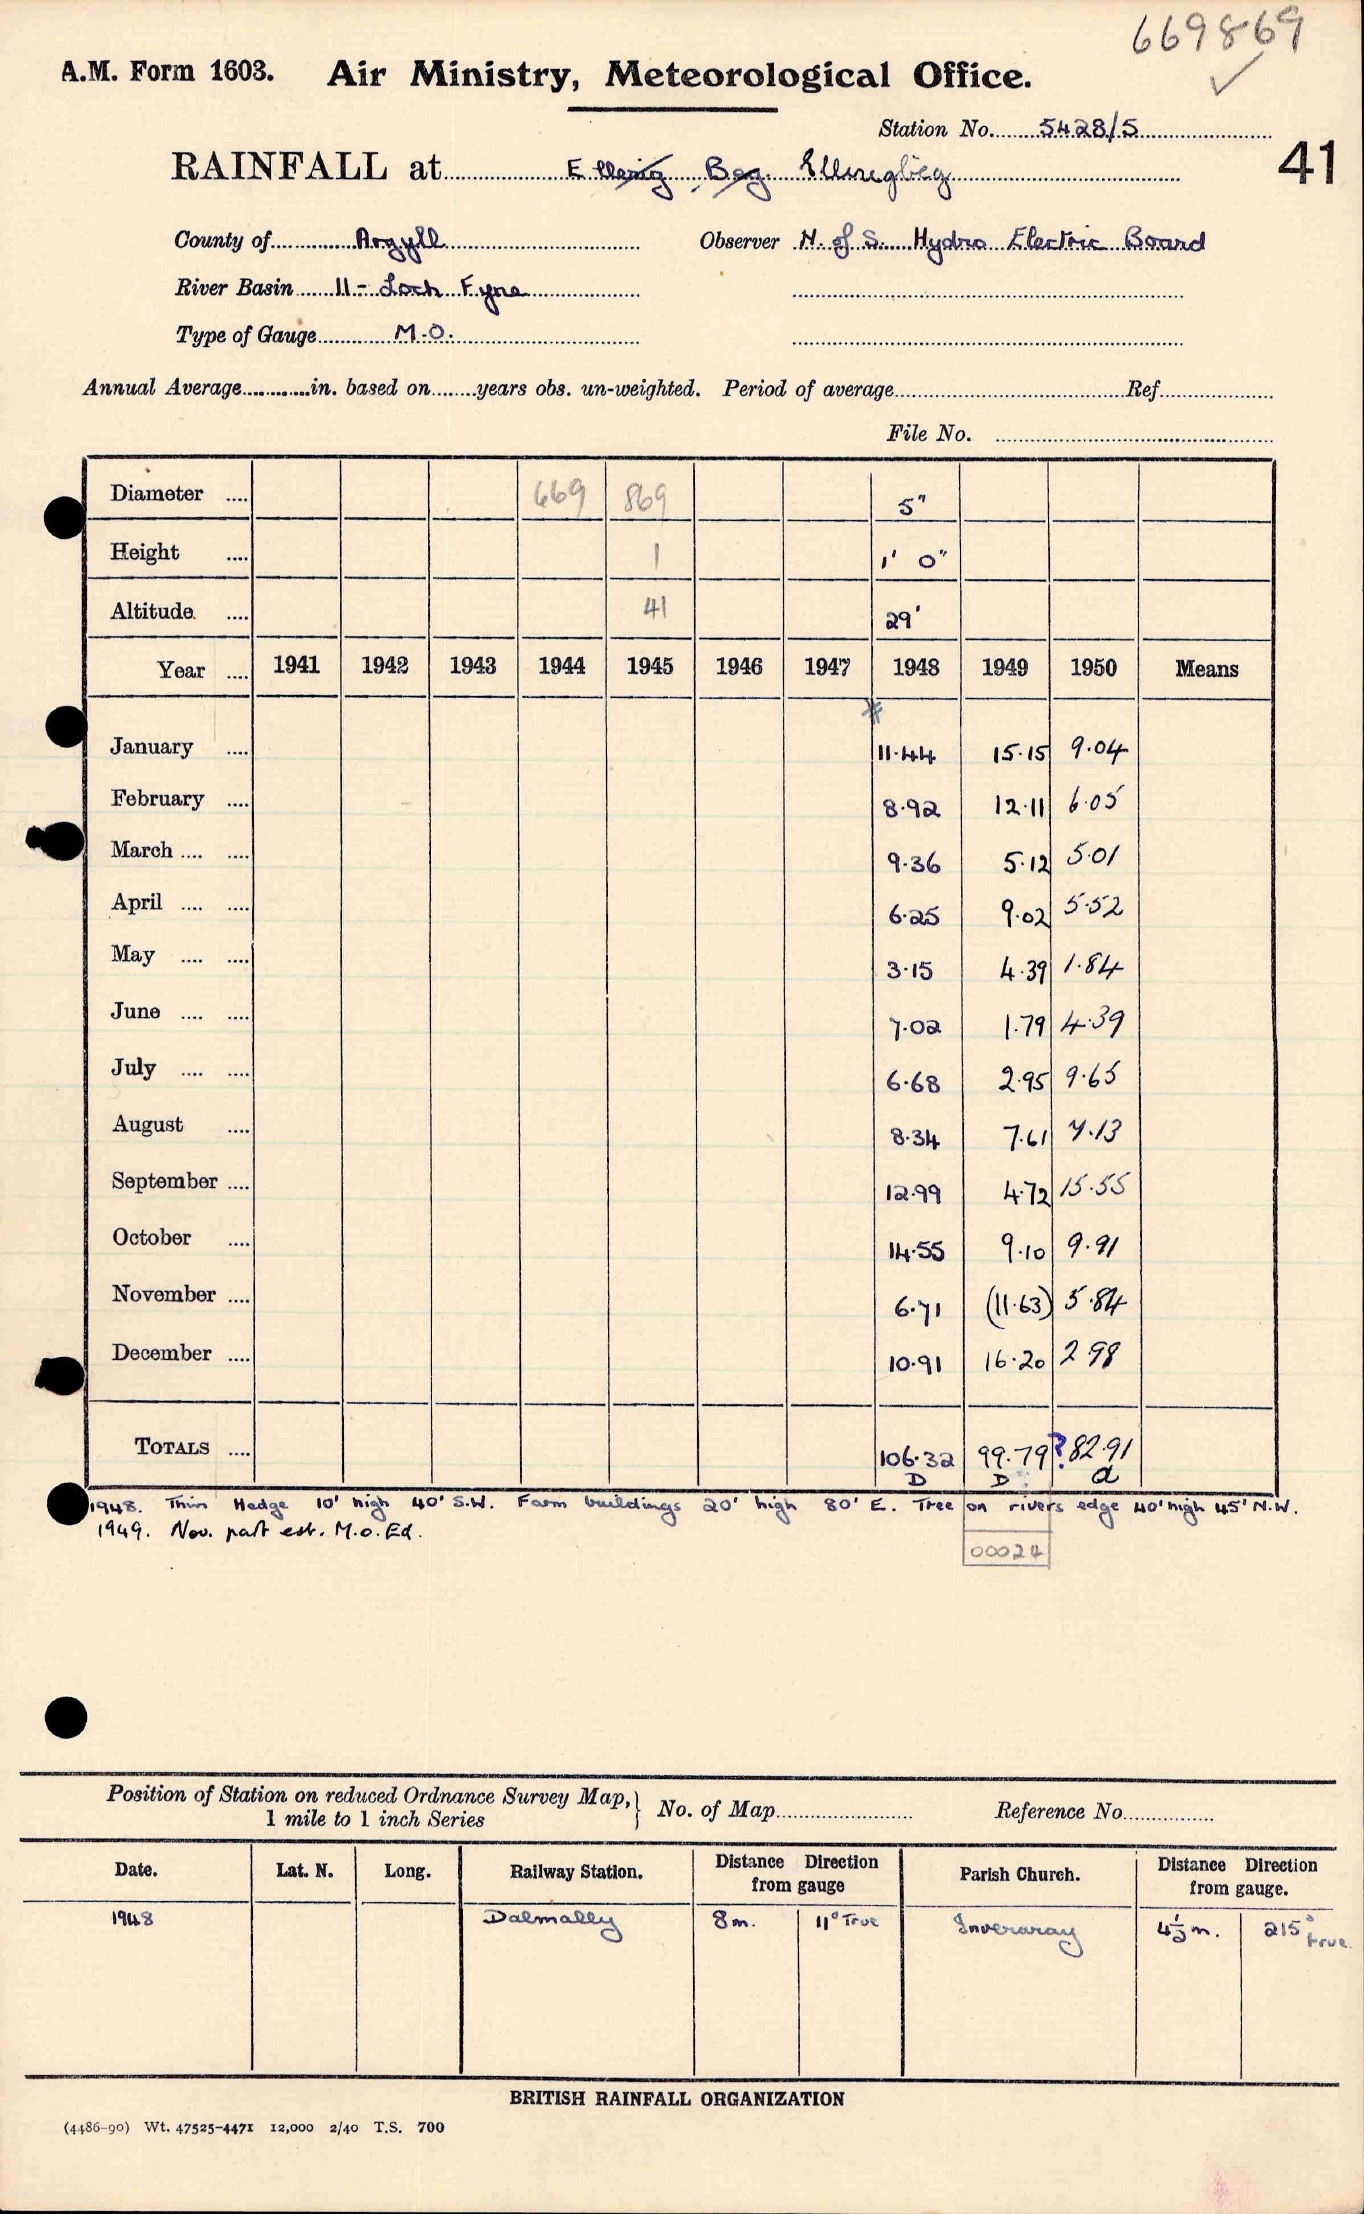 669869
A.M. Form 1603. Air Ministry, Meteorological Office.
Station No. 5428/5
41
RAINFALL at Ellerig Beg Ellereg Beg
County of Argyll Observer N. of S. Hydro Electric Board
River Basin 11 - Loch Fyne
Type of Gauge M.O.
Annual Average in. based on years obs. un-weighted. Period of average Ref.
File No.
Diameter .... 669 869 5"
Height .... 1 1' 0"
Altitude .... 41 29'
Year .... 1941 1942 1943 1944 1945 1946 1947 1948 1949 1950 Means
*
January .... 11.44 15.15 9.04
February .... 8.92 12.11 6.05
March .... .... 9.36 5.12 5.01
April .... .... 6.25 9.02 5.52
May .... .... 3.15 4.39 1.84
June .... .... 7.02 1.79 4.39
July .... .... 6.68 2.95 9.65
August .... 8.34 7.61 7.13
September .... 12.99 4.72 15.55
October .... 14.55 9.10 9.91
November .... 6.71 (11.63) 5.84
December .... 10.91 16.20 2.98
TOTALS .... 106.32 99.79 ? 82.91
D D a
1948. Thin Hedge 10' high 40' S.W. Farm buildings 20' high 80' E. Tree on rivers edge 40' high 45' N.W.
1949. Nov. part est. M.O. Ed.
00024
Position of Station on reduced Ordnance Survey Map, 1 mile to 1 inch Series } No. of Map Reference No.
Date. Lat. N. Long. Railway Station. Distance Direction from gauge Parish Church. Distance Direction from gauge.
1948 Dalmally 8m. 11° True Inveraray 4½m. 215° true
BRITISH RAINFALL ORGANIZATION
(4486-90) Wt. 47525-4471 12,000 2/40 T.S. 700